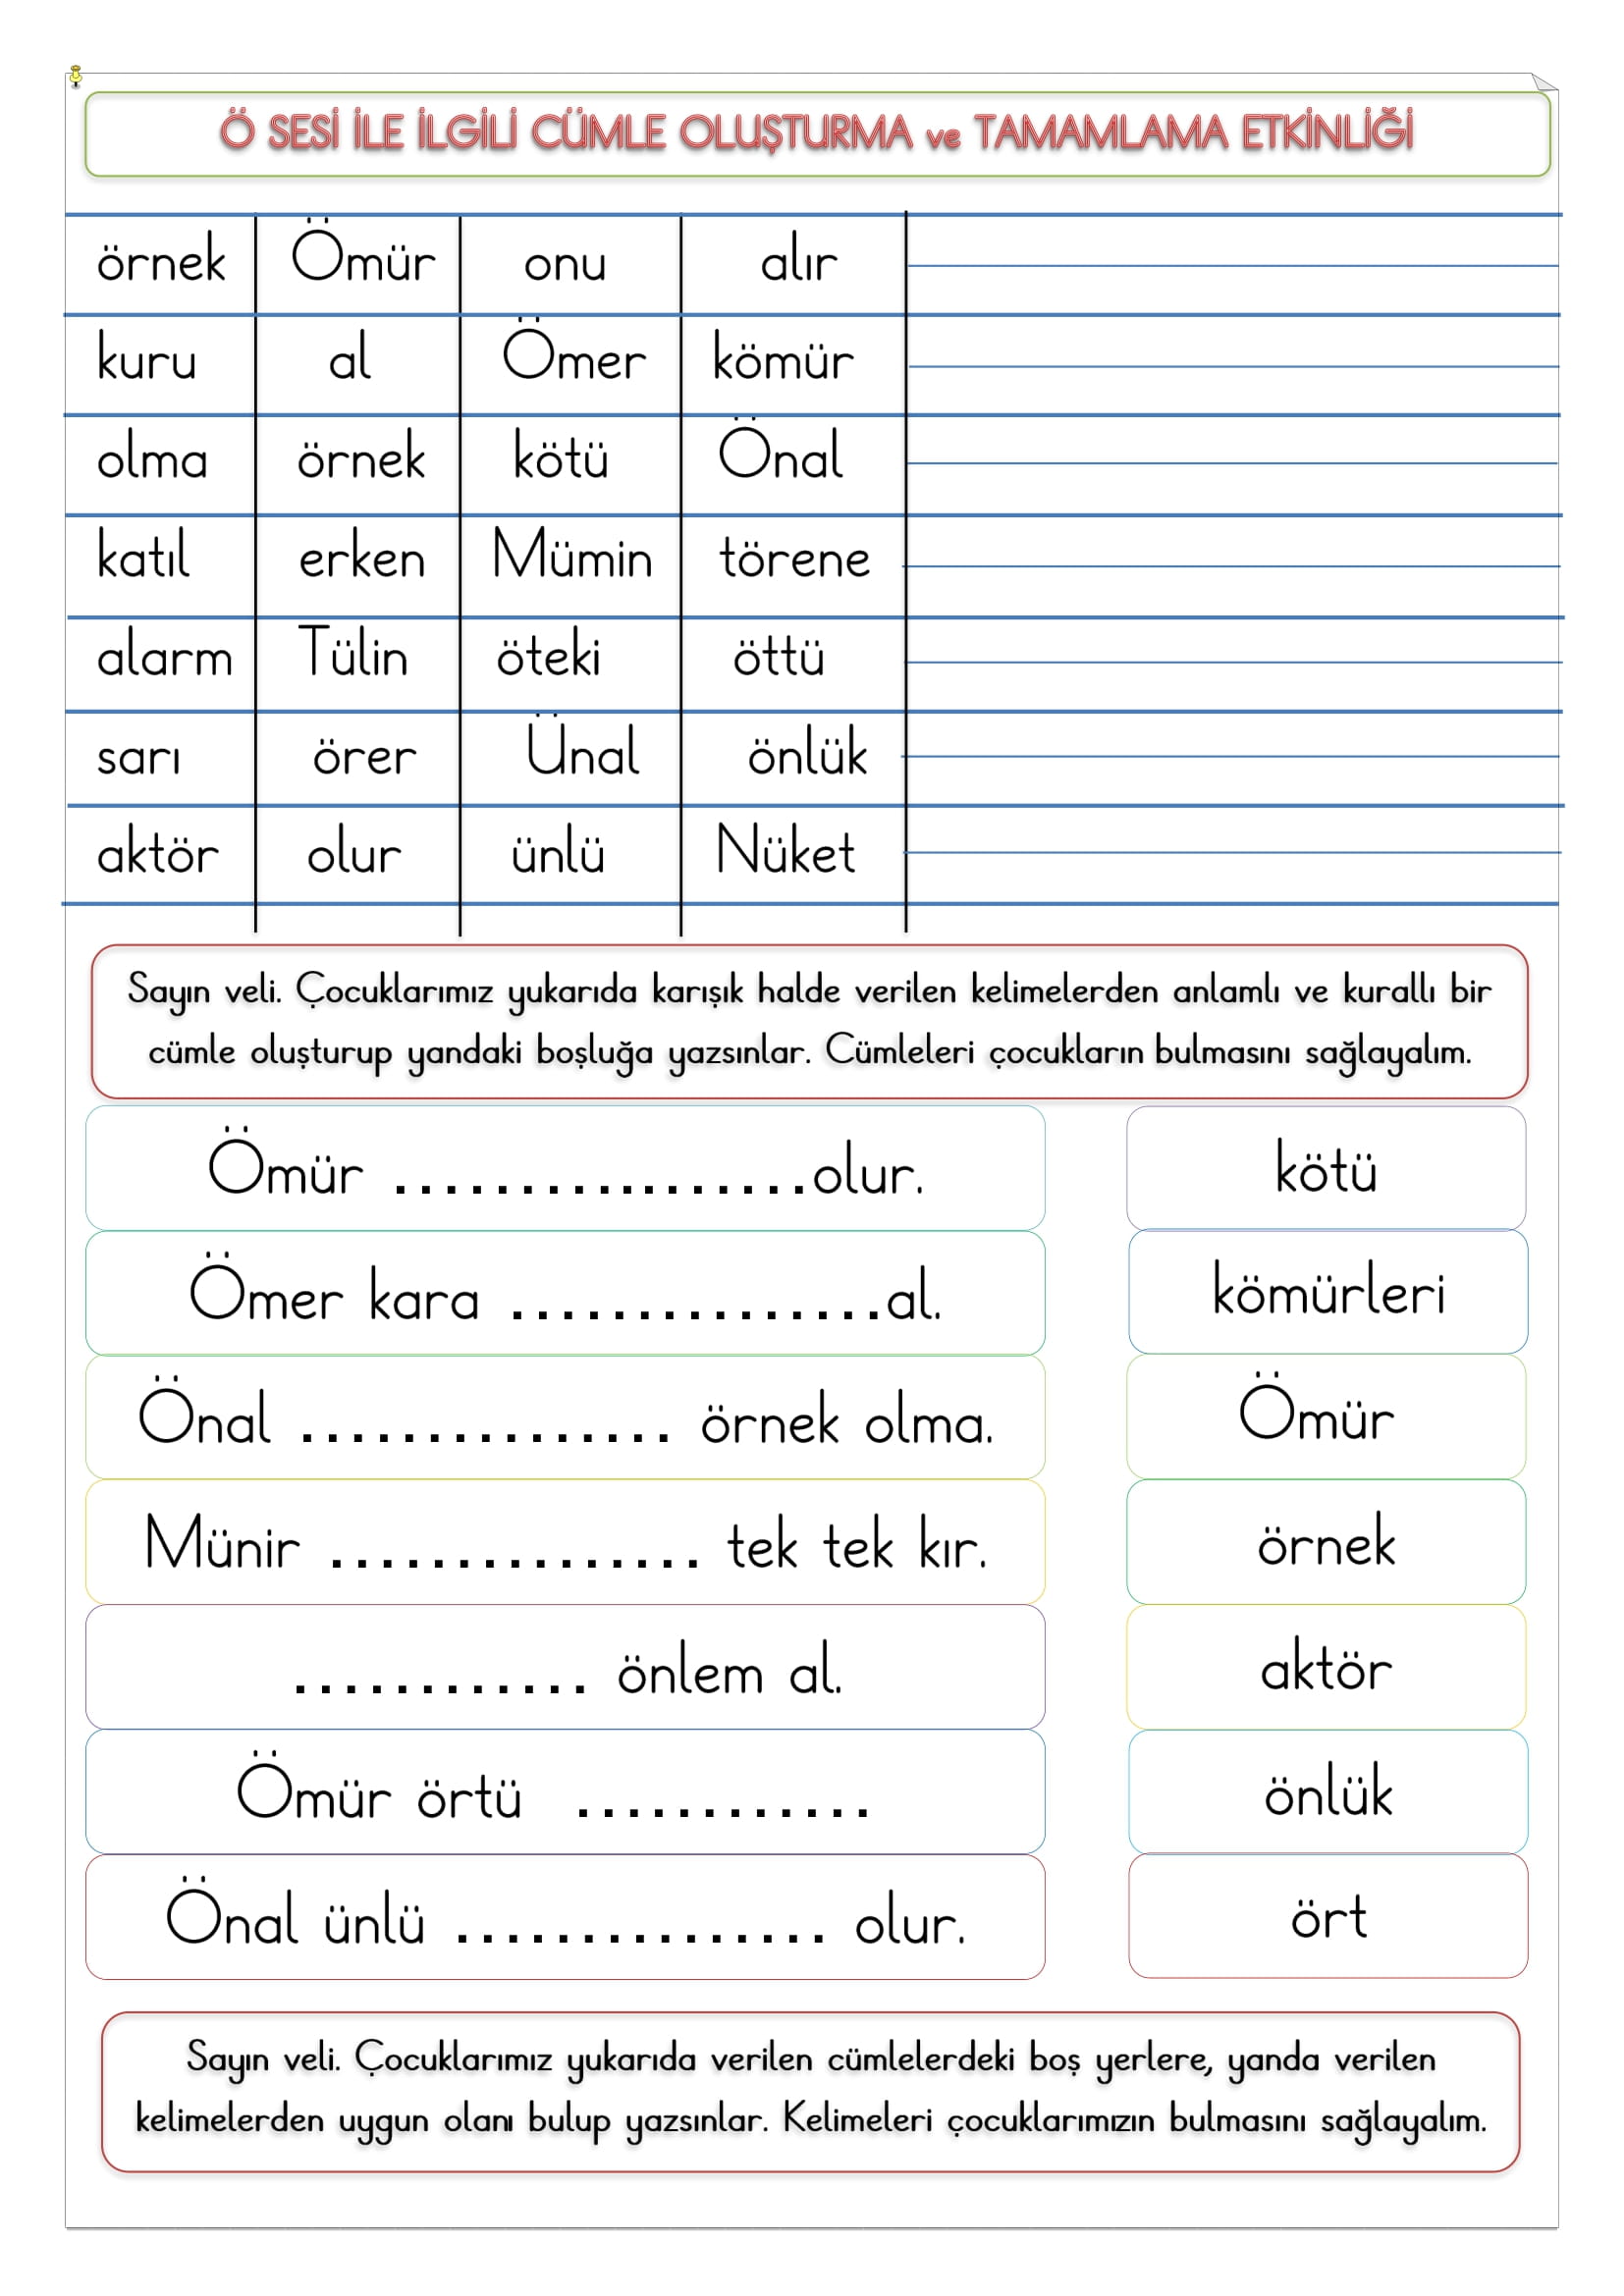 Ö SESİ İLE İLGİLİ CÜMLE OLUŞTURMA ve TAMAMLAMA ETKİNLİĞİ
örnek Ömür onu alır
kuru al Ömer kömür
olma örnek kötü Önal
katıl erken Mümin törene
alarm Tülin öteki öttü
sarı örer Ünal önlük
aktör olur ünlü Nüket
Sayın veli. Çocuklarımız yukarıda karışık halde verilen kelimelerden anlamlı ve kurallı bir
cümle oluşturup yandaki boşluğa yazsınlar. Cümleleri çocukların bulmasını sağlayalım.
Ömür ................olur. kötü
Ömer kara ...............al. kömürleri
Önal ............... örnek olma. Ömür
Münir ............... tek tek kır. örnek
............ önlem al. aktör
Ömür örtü ............ önlük
Önal ünlü ............... olur. ört
Sayın veli. Çocuklarımız yukarıda verilen cümlelerdeki boş yerlere, yanda verilen
kelimelerden uygun olanı bulup yazsınlar. Kelimeleri çocuklarımızın bulmasını sağlayalım.